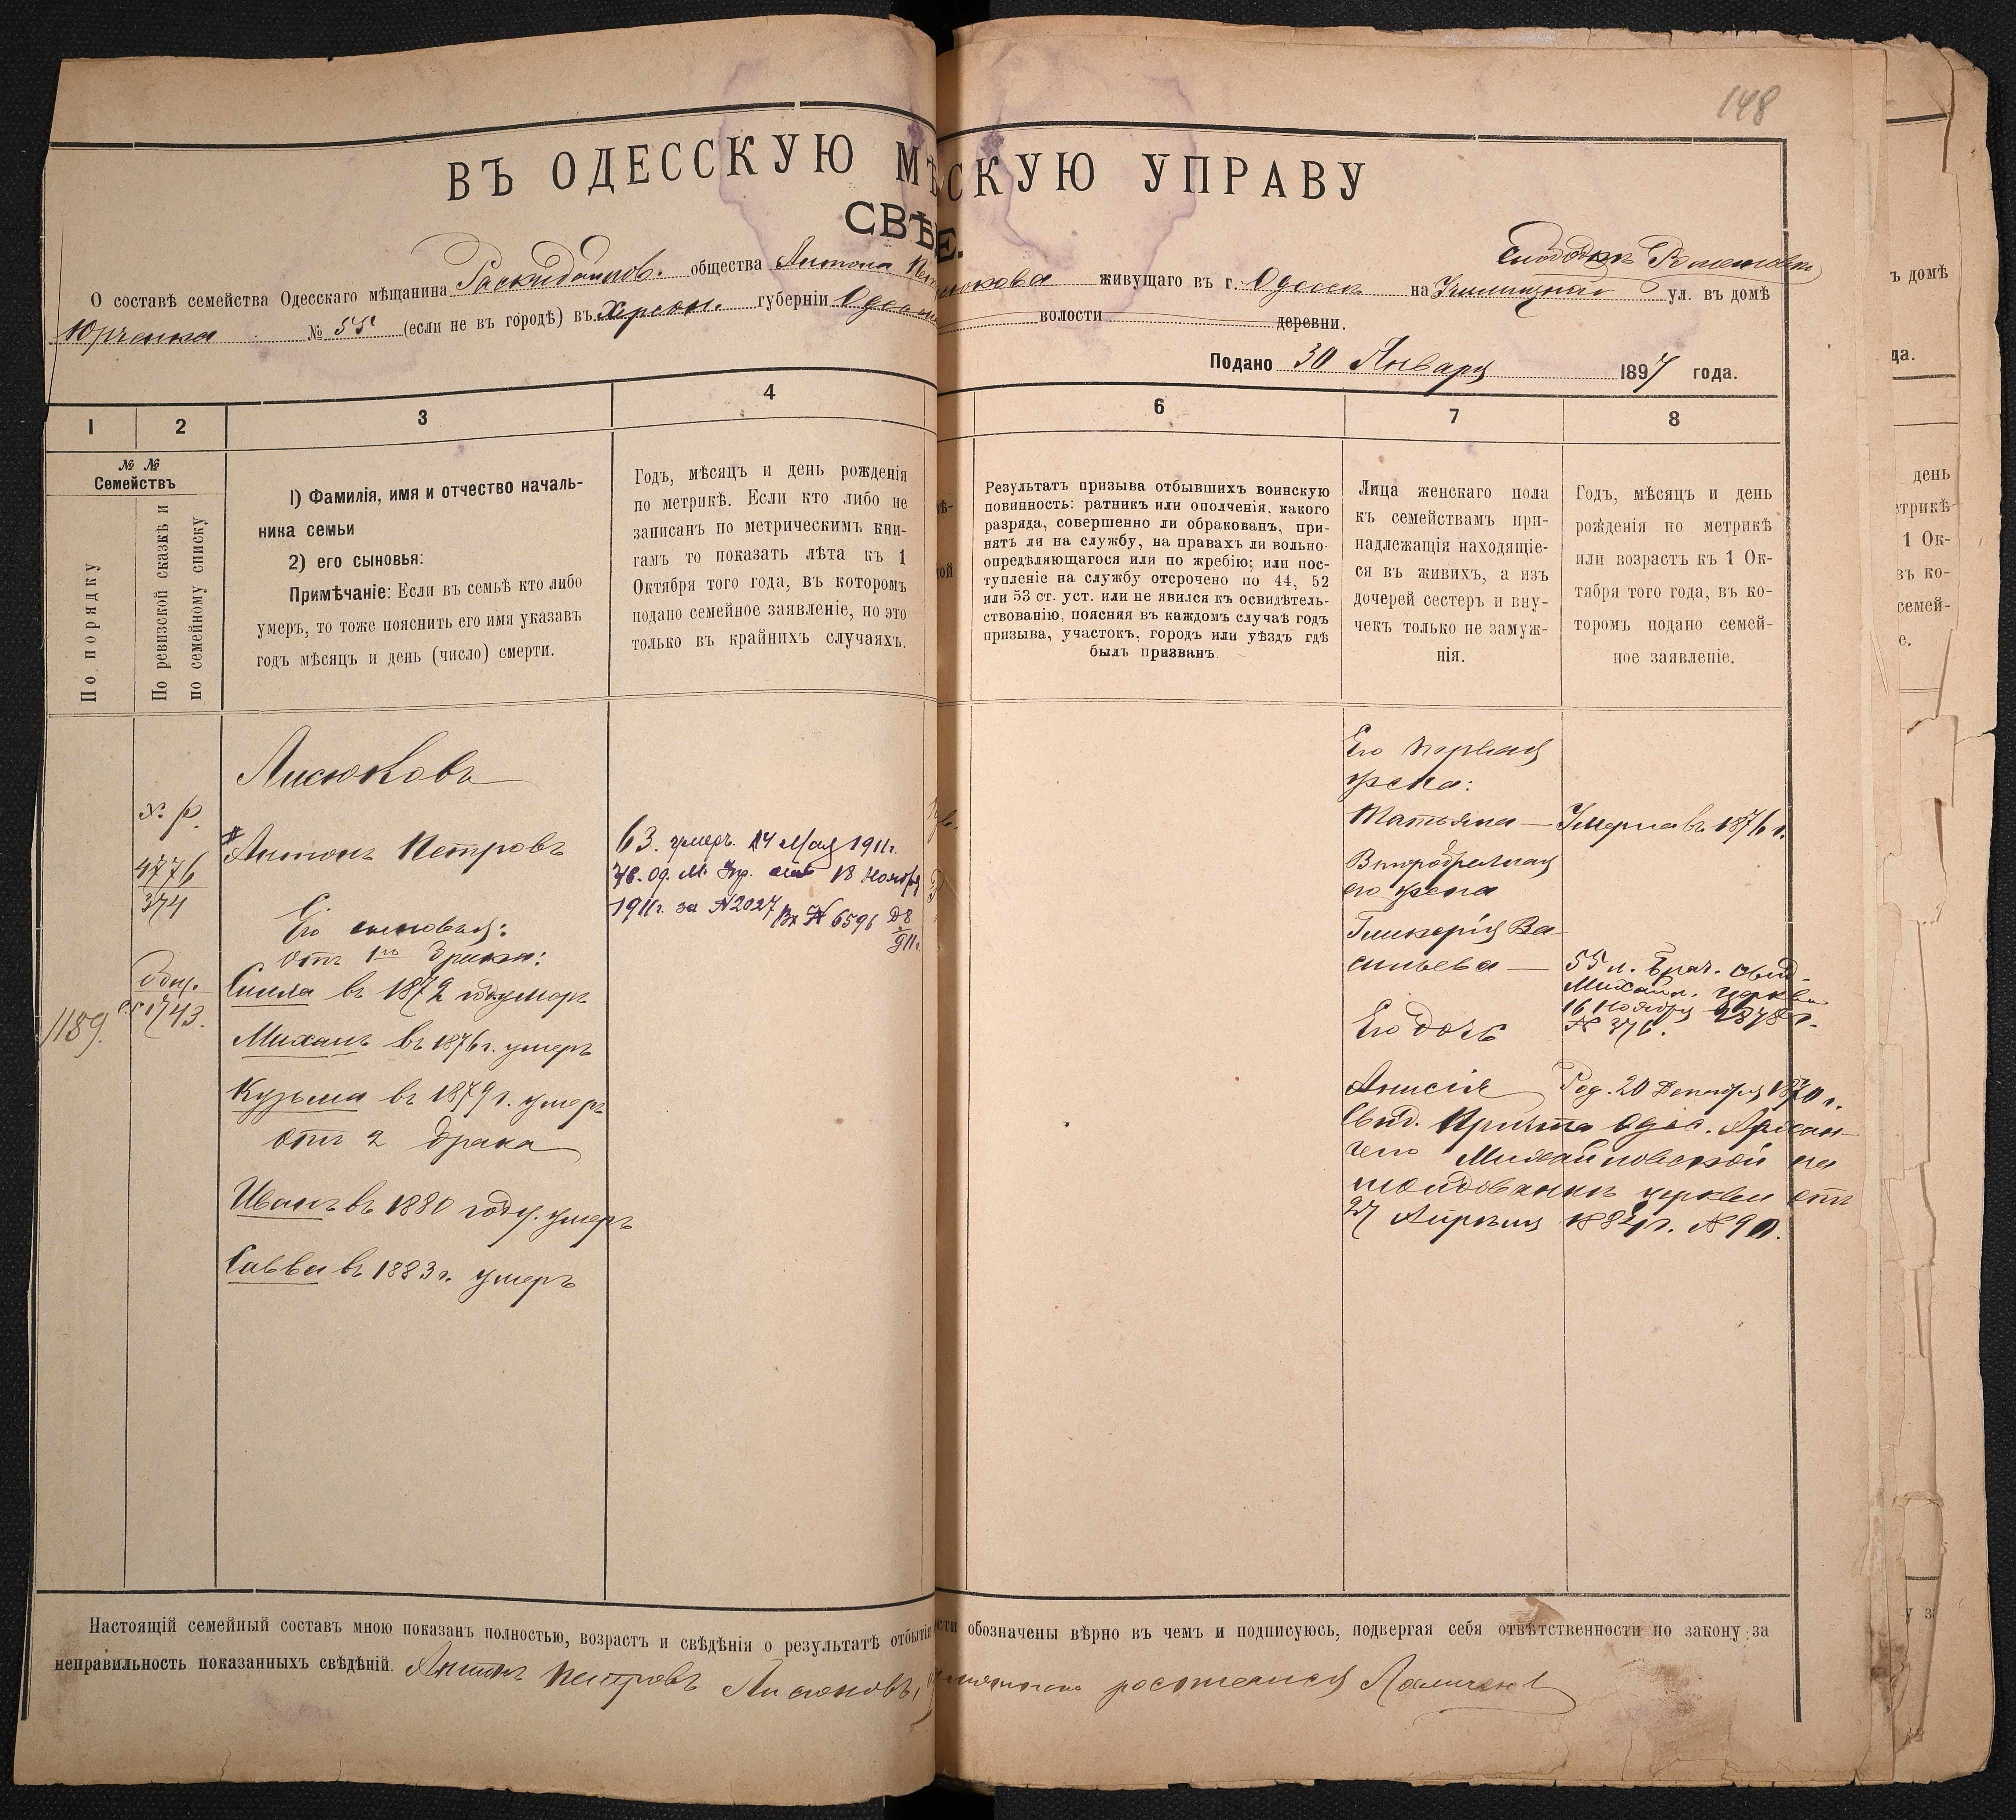 148
ВЪ ОДЕССКУЮ МѢ СКУЮ УПРАВУ
СВѢ Е.
О составѣ семейства Одесскаго мѣщанина общества Антона живущаго въ г. Одесса на ул. въ домѣ
Юрченка № 55 (если не въ городѣ) въ Херсон. губерніи волости деревни.
Подано 30 Января 1897 года.
1 2 3 4 6 7 8
№ №
Семействъ
По порядку
По ревизской сказкѣ и
по семейному списку
1) Фамилія, имя и отчество началь-
ника семьи
2) его сыновья:
Примѣчаніе: Если въ семьѣ кто либо
умеръ, то тоже пояснить его имя указавъ
годъ мѣсяцъ и день (число) смерти.
Годъ, мѣсяцъ и день рожденія
по метрикѣ. Если кто либо не
записанъ по метрическимъ кни-
гамъ то показать лѣта къ 1
Октября того года, въ которомъ
подано семейное заявленіе, но это
только въ крайнихъ случаяхъ.
Результатъ призыва отбывшихъ воинскую
повинность: ратникъ или ополченія, какого
разряда, совершенно ли обракованъ, при-
нятъ ли на службу, на правахъ ли вольно-
опредѣляющагося или по жребію; или пос-
тупленіе на службу отсрочено по 44, 52
или 53 ст. уст. или не явился къ освидѣтель-
ствованію, поясняя въ каждомъ случаѣ годъ
призыва, участокъ, городъ или уѣздъ гдѣ
былъ призванъ.
Лица женскаго пола
къ семействамъ при-
надлежащія находящіе-
ся въ живихъ, а изъ
дочерей сестеръ и вну-
чекъ только не замуж-
нія.
Годъ, мѣсяцъ и день
рожденія по метрикѣ
или возрастъ къ 1 Ок-
тября того года, въ ко-
торомъ подано семей-
ное заявленіе.
Лисюковъ
4776
374
1743.
1189.
Антонъ Петровъ
Его сыновья:
отъ 1го брака:
въ 1872 году умеръ
Михаилъ въ 1876 г. умеръ
Кузьма въ 1879 г. умеръ
отъ 2 брака
Иванъ въ 1880 году. умеръ
Савва въ 1883 г. умеръ
63. умеръ 14 Мая 1911 г.
18 Ноября
1911 г. за № 2027 Вх № 6596
Его первая
жена:
Татьяна — Умерла въ 1876 г.
Второбрачная
его жена
Гликерія Ва-
сильева — 55 л. Брач. свид.
Михайл. церкви
16 Ноября 1878 г.
№ 376.
Его дочь
Анисія Род. 20 Декабря 1870 г.
Свид. Причта Одес. Архан-
гело Михайловской на
молдованкѣ церкви отъ
27 Апрѣля 1884 г. № 90.
Настоящій семейный составъ мною показанъ полностью, возрастъ и свѣдѣнія о результатѣ отбытія сти обозначены вѣрно въ чемъ и подписуюсь, подвергая себя отвѣтственности по закону за
неправильность показанныхъ свѣдѣній. Антонъ Петровъ Лисюковъ,
ъ домѣ
да.
день
етрикѣ
1 Ок-
въ ко-
семей-
е.
у за